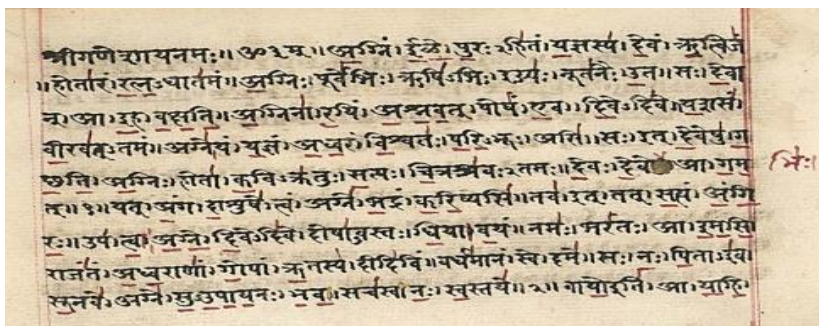 श्रीगणेशायनमः॥ ॐ३म्॥ अग्निं। ईळे। पुरःऽहितं। यज्ञस्य। देवं। ऋत्विजं
॥होतारं। रत्नऽधातमं॥ अग्निः। पूर्वेभिः। ऋषिऽभिः। ईड्यः। नूतनैः। उत॥ सः। देवा
न्। आ। इह। वक्षति॥ अग्निना। रयिं। अश्नवत्। पोषं। एव। दिवेऽदिवे॥ यशसं
वीरवत्ऽतमं॥ अग्ने। यं। यज्ञं। अध्वरं। विश्वतः। परिऽभूः। असि॥ सः। इत्। देवेषु। ग
च्छति। अग्निः। होता। कविऽक्रतुः। सत्यः। चित्रश्रवःऽतमः॥ देवः। देवे आ। गम भिः।
त्॥१॥ यत्। अंग। दाशुषे। त्वं। अग्ने। भद्रं। करिष्यसि॥ तव। इत्। तत्। सत्यं। अंगि
रः॥ उप। त्वा। अग्ने। दिवेऽदिवे। दोषाऽवस्तः। धिया। वयं॥ नमः। भरंतः। आ। इमसि
राजंतं। अध्वराणां। गोपां। ऋतस्य। दीदिविं॥ वर्धमानं। स्वे। दमे॥ सः। नः। पिताऽइव।
सूनवे। अग्ने। सुऽउपायनः। भव॥ सचस्व। नः। स्वस्तये॥२॥ वायो इति। आ। याहि।